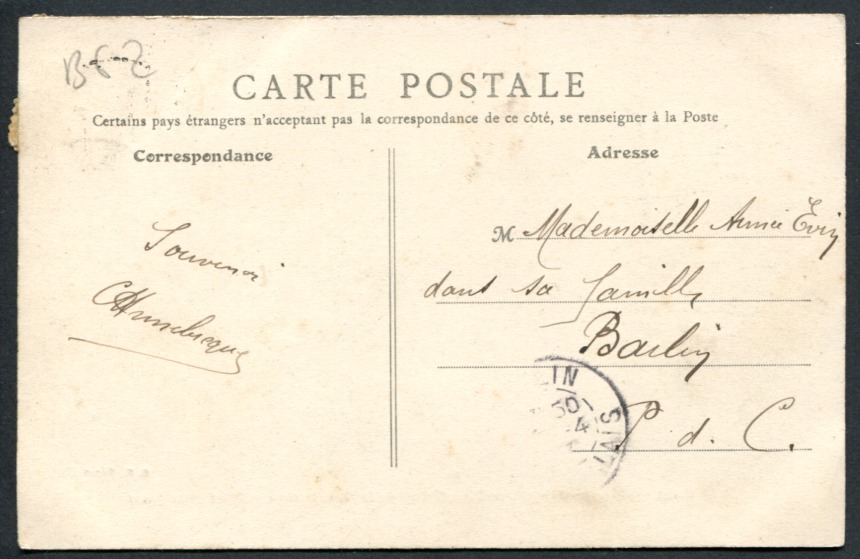 CARTE POSTALE
Certains pays étrangers n'acceptant pas la correspondance de ce côté, se renseigner à la Poste
Correspondance
Souvenir
Adresse
M Mademoiselle
dans sa famille
Barlin
P. d. C.
LIN
30
4
LAIS